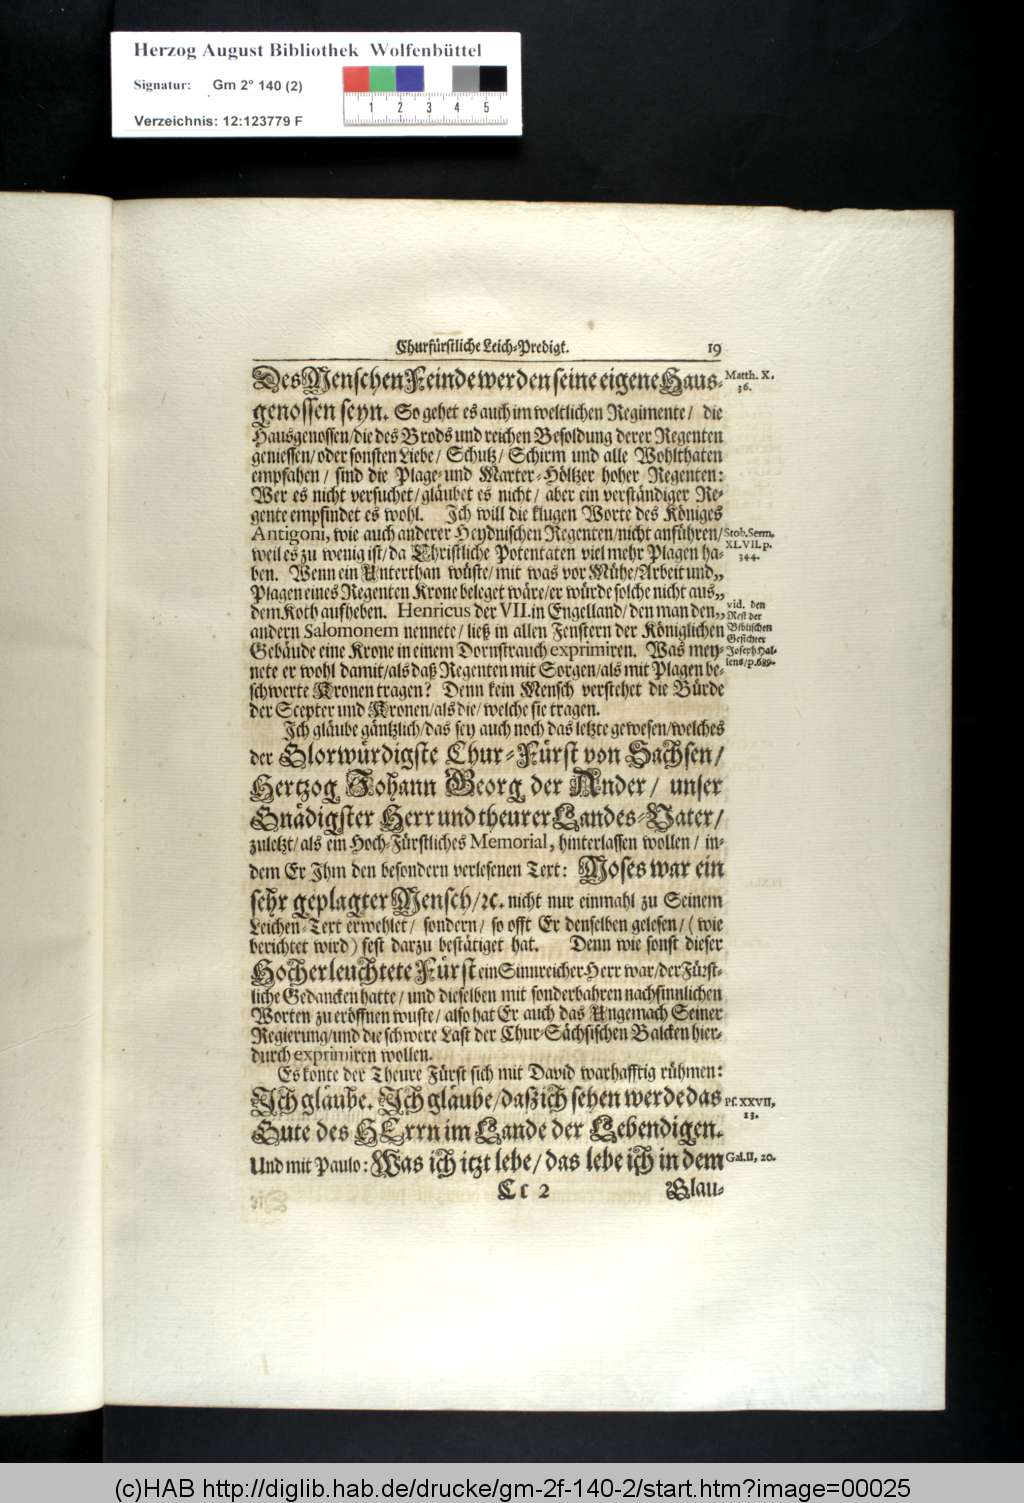 Herzog August Bibliothek Wolfenbüttel
Signatur: Gm 2° 140 (2)
1 2 3 4 5
Verzeichnis: 12:123779 F
Churfürstliche Leich-Predigt. 19
Des Menschen Feinde werden seine eigene Haus-
Matth. X. 36.
genossen seyn. So gehet es auch im weltlichen Regimente/ die
Hausgenossen/die des Brods und reichen Besoldung derer Regenten
geniessen/ oder sonsten Liebe/ Schutz/ Schirm und alle Wohlthaten
empfahen/ sind die Plage-und Marter-Höltzer hoher Regenten:
Wer es nicht versuchet/gläubet es nicht/ aber ein verständiger Re-
gente empfindet es wohl. Ich will die klugen Worte des Königes
Antigoni, wie auch anderer Heydnischen Regenten/nicht anführen/
Stob. Serm. XLVII. p. 344.
weil es zu wenig ist/da Christliche Potentaten viel mehr Plagen ha-
ben. Wenn ein Unterthan wüste/ mit was vor Mühe/Arbeit und„
Plagen eines Regenten Krone beleget wäre/er würde solche nicht aus„
dem Koth aufheben. Henricus der VII. in Engelland/ den man den„
vid. den Rest der Biblischen Gesichter Joseph Hallens/p.689.
andern Salomonem nennete/ ließ in allen Fenstern der Königlichen
Gebäude eine Krone in einem Dornstrauch exprimiren. Was mey-
nete er wohl damit/als daß Regenten mit Sorgen/als mit Plagen be-
schwerte Kronen tragen? Denn kein Mensch verstehet die Bürde
der Scepter und Kronen/als die/ welche sie tragen.
Ich gläube gäntzlich/das sey auch noch das letzte gewesen/welches
der Glorwürdigste Chur-Fürst von Sachsen/
Hertzog Johann Georg der Ander/ unser
Gnädigster Herr und theurer Landes-Vater/
zuletzt/als ein Hoch-Fürstliches Memorial, hinterlassen wollen/ in-
dem Er Ihm den besondern verlesenen Text: Moses war ein
sehr geplagter Mensch/ꝛc. nicht nur einmahl zu Seinem
Leichen-Text erwehlet/ sondern/ so offt Er denselben gelesen/ (wie
berichtet wird) fest darzu bestätiget hat. Denn wie sonst dieser
Hocherleuchtete Fürst ein Sinnreicher Herr war/der Fürst-
liche Gedancken hatte/ und dieselben mit sonderbahren nachsinnlichen
Worten zu eröffnen wuste/ also hat Er auch das Ungemach Seiner
Regierung/und die schwere Last der Chur-Sächsischen Balcken hier-
durch exprimiren wollen.
Es konte der Theure Fürst sich mit David warhafftig rühmen:
Ich gläube. Ich gläube/daß ich sehen werde das
Ps. XXVII, 13.
Gute des HErrn im Lande der Lebendigen.
Und mit Paulo: Was ich itzt lebe/ das lebe ich in dem
Gal. II, 20.
Cc 2 Glau-
(c)HAB http://diglib.hab.de/drucke/gm-2f-140-2/start.htm?image=00025